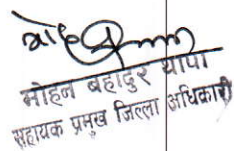 मोहन बहादुर थापा
सहायक प्रमुख जिल्ला अधिकारी